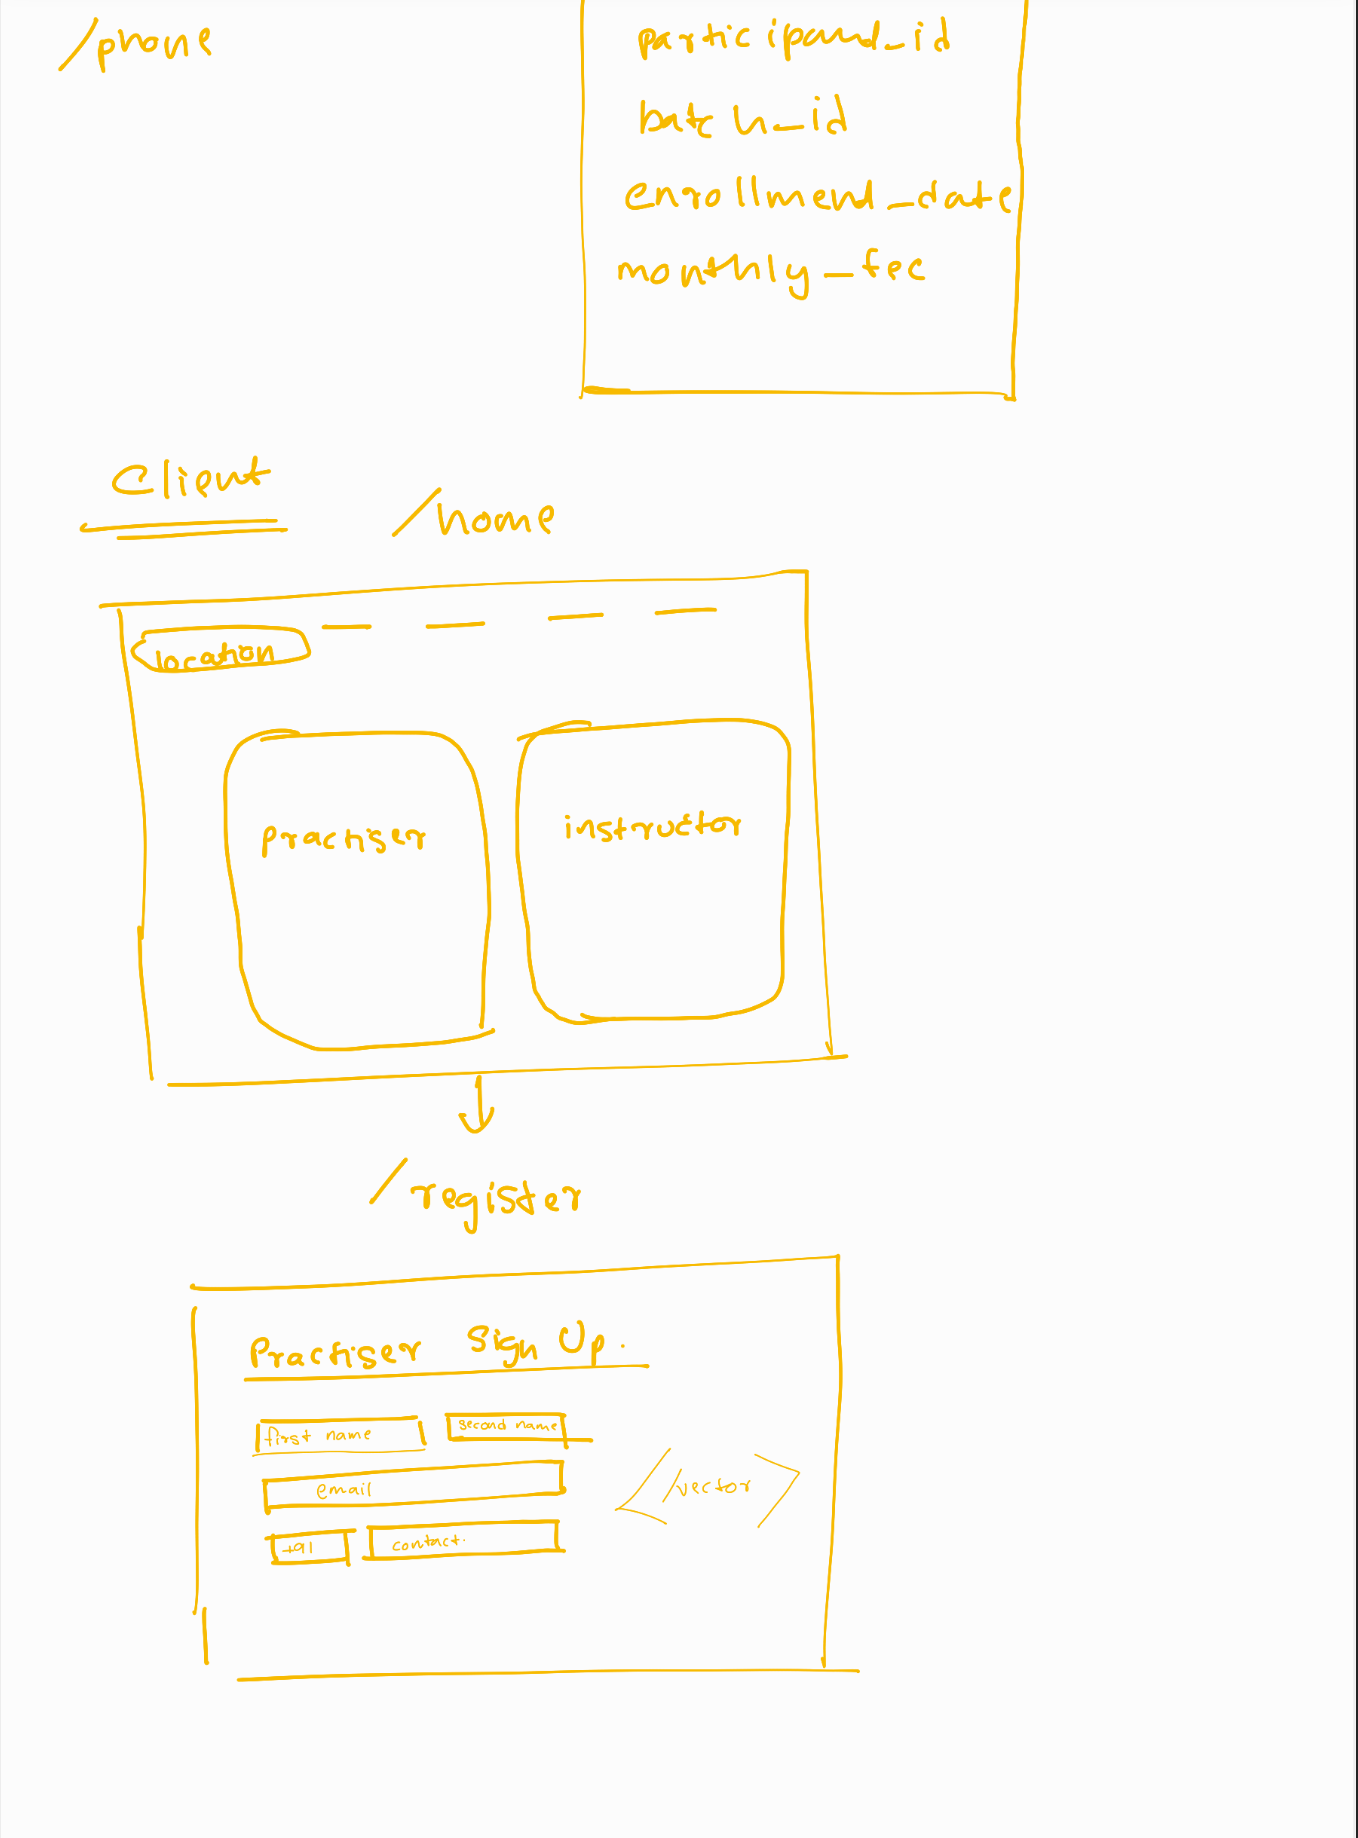 /phone
participand_id
batch_id
enrollmend_date
monthly_fee
Client
/home
location
practiser
instructor
/register
Practiser Sign Up.
first name
second name
email
</vector>
+91
contact.